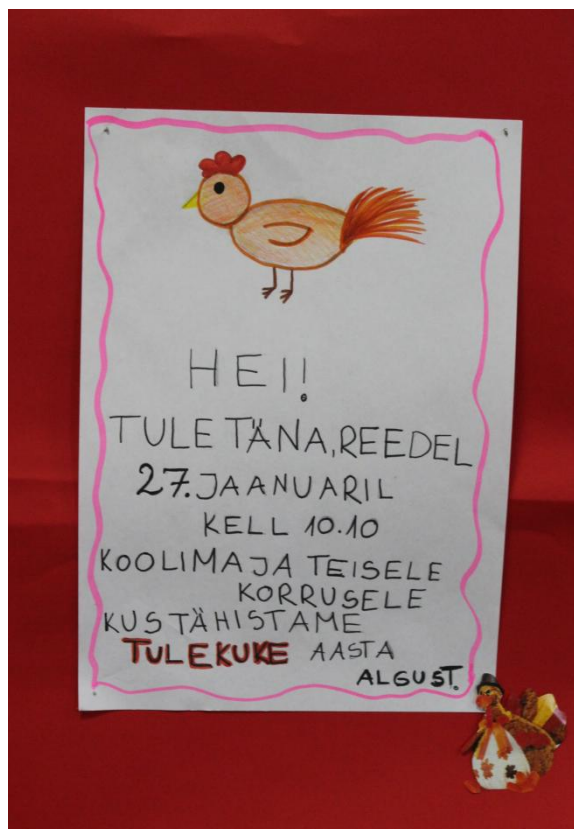 HEI!
TULE TÄNA, REEDEL
27. JAANUARIL
KELL 10.10
KOOLIMAJA TEISELE
KORRUSELE
KUS TÄHISTAME
TULEKUKE AASTA
ALGUST.